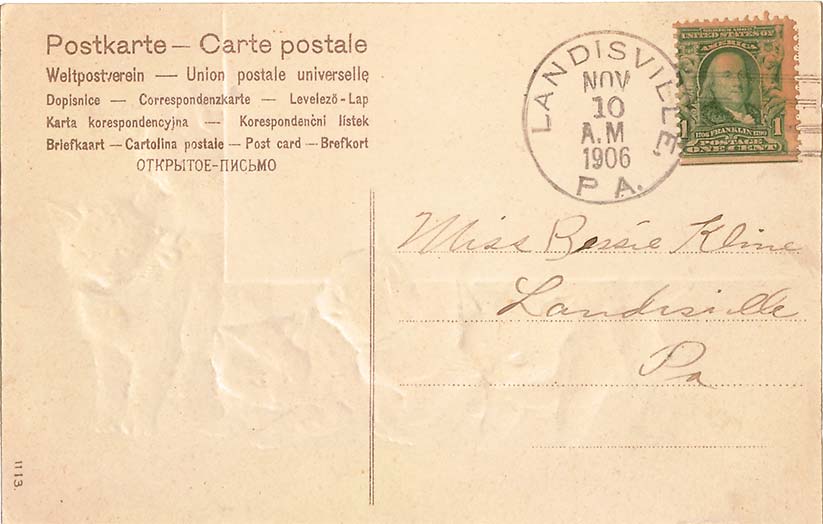 Postkarte — Carte postale
Weltpostverein — Union postale universelle
Dopisnice — Correspondenzkarte — Levelező-Lap
Karta korespondencyjna — Korespondenčni lístek
Briefkaart — Cartolina postale — Post card — Brefkort
ОТКРЫТОЕ-ПИСЬМО
LANDISVILLE, PA.
NOV
10
A.M
1906
UNITED STATES OF
AMERICA
1 1706 FRANKLIN 1790 1
POSTAGE
ONE CENT
Miss Bessie Kline
Landisville
Pa
1113.